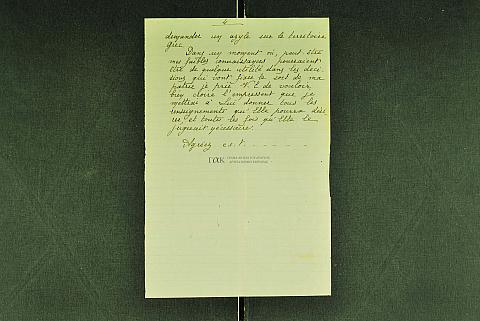 4
demander un azyle sur le territoire
grec.
Dans un moment où, peut-être
mes faibles connaissances pourraient
être de quelque utilité dans les déci-
sions qui vont fixer le sort de ma
patrie je prie V. E. de vouloir
bien croire l'empressement que je
mettrai à Lui donner tous les
renseignements qu'Elle pourra dési-
rer et toutes les fois qu'Elle le
jugerait nécessaire.
Agréez e.s.t.
ΓΑΚ